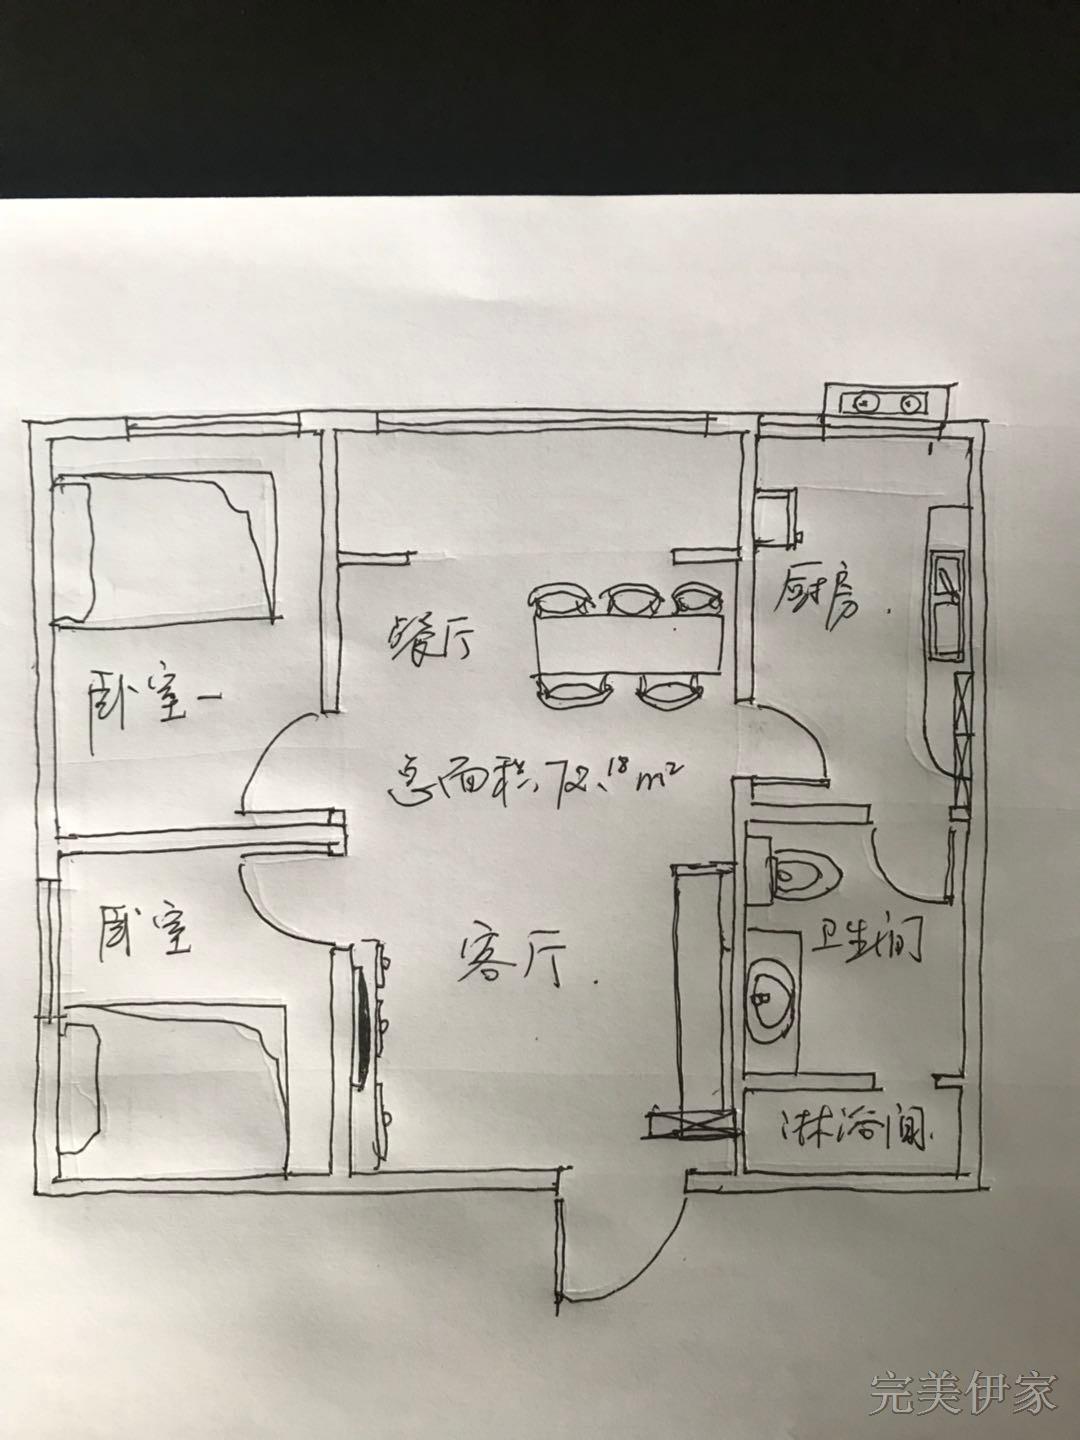 厨房.
餐厅
卧室一
总面积:72.18m²
卧室
客厅.
卫生间
淋浴间.
完美伊家